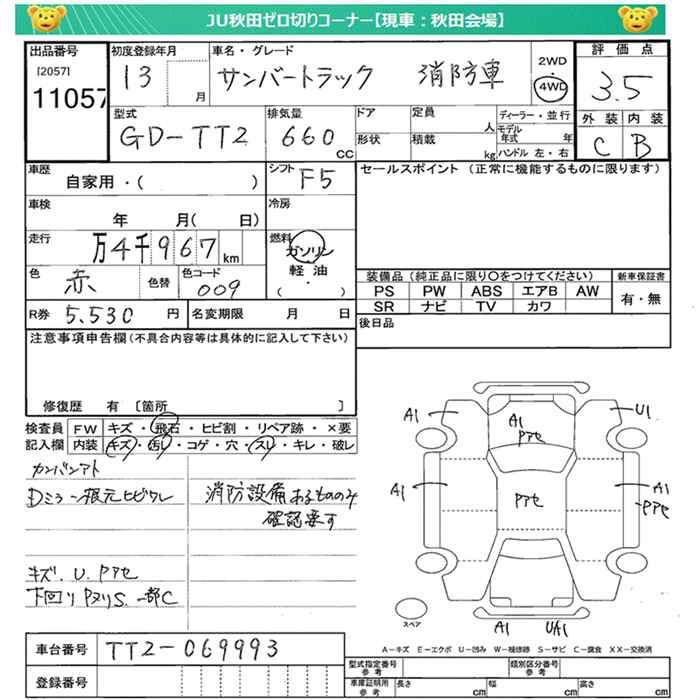 JU秋田ゼロ切りコーナー【現車：秋田会場】
出品番号
[2057]
11057
初度登録年月
13
月
車名・グレード
サンバートラック 消防車
2WD
・
4WD
評価点
3.5
外装 内装
C B
型式
GD-TT2
排気量
660
CC
ドア
形状
定員
人
積載
kg
ディーラー・並行
モデル年式 年
ハンドル 左・右
車歴
自家用・( )
シフト
F5
セールスポイント (正常に機能するものに限ります)
車検
年 月( 日)
冷房
走行
万4千967km
燃料
ガソリン
軽油
・
( )
色
赤
色替
色コード
009
装備品 (純正品に限り○をつけてください)
PS PW ABS エアB AW
SR ナビ TV カワ
新車保証書
有・無
R券 5.530 円
名変期限 月 日
後日品
注意事項申告欄(不具合内容等は具体的に記入して下さい)
修復歴 有 〔箇所 〕
検査員記入欄
FW キズ・飛石・ヒビ割・リペア跡・×要
内装 キズ・汚れ・コゲ・穴・スレ・キレ・破レ
カンバンアト
Dミラー根元ヒビワレ
消防設備あるもののみ
確認要す
キズ.U.Pアセ
下回りPヌリS.一部C
A1
A1
Pアセ
U1
A1
Pアセ
A1
-Pアセ
A1 UA1
スペア
A－キズ E－エクボ U－凹み W－補修跡 S－サビ C－腐食 XX－交換済
車台番号 TT2-069993
登録番号
型式指定番号
参考
類別区分番号
参考
車庫証明用
参考
長さ cm
幅 cm
高さ cm